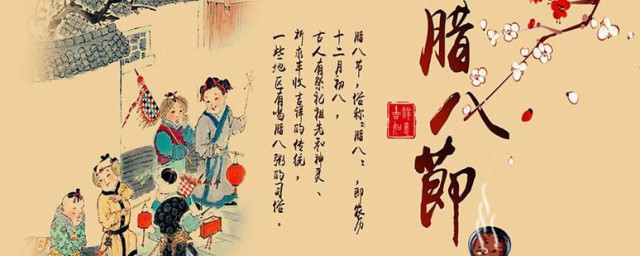 腊八節
腊八节，俗称“腊八”，即农历
十二月初八，
古人有祭祀祖先和神灵、
祈求丰收吉祥的传统，
一些地区有喝腊八粥的习俗。